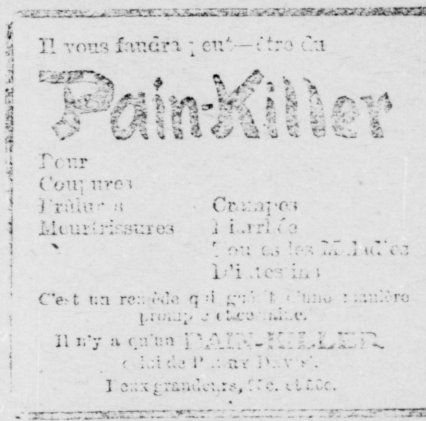 Il vous faudra peut-être du
Pain-Killer
Pour
Coupures
Brûlures
Meurtrissures
Crampes
Diarrhée
Toutes les Maladies
D'Intestins
C'est un remède qui guérit d'une manière
prompte et certaine.
Il n'y a qu'un PAIN-KILLER
celui de Perry Davis.
Deux grandeurs, 25c. et 50c.